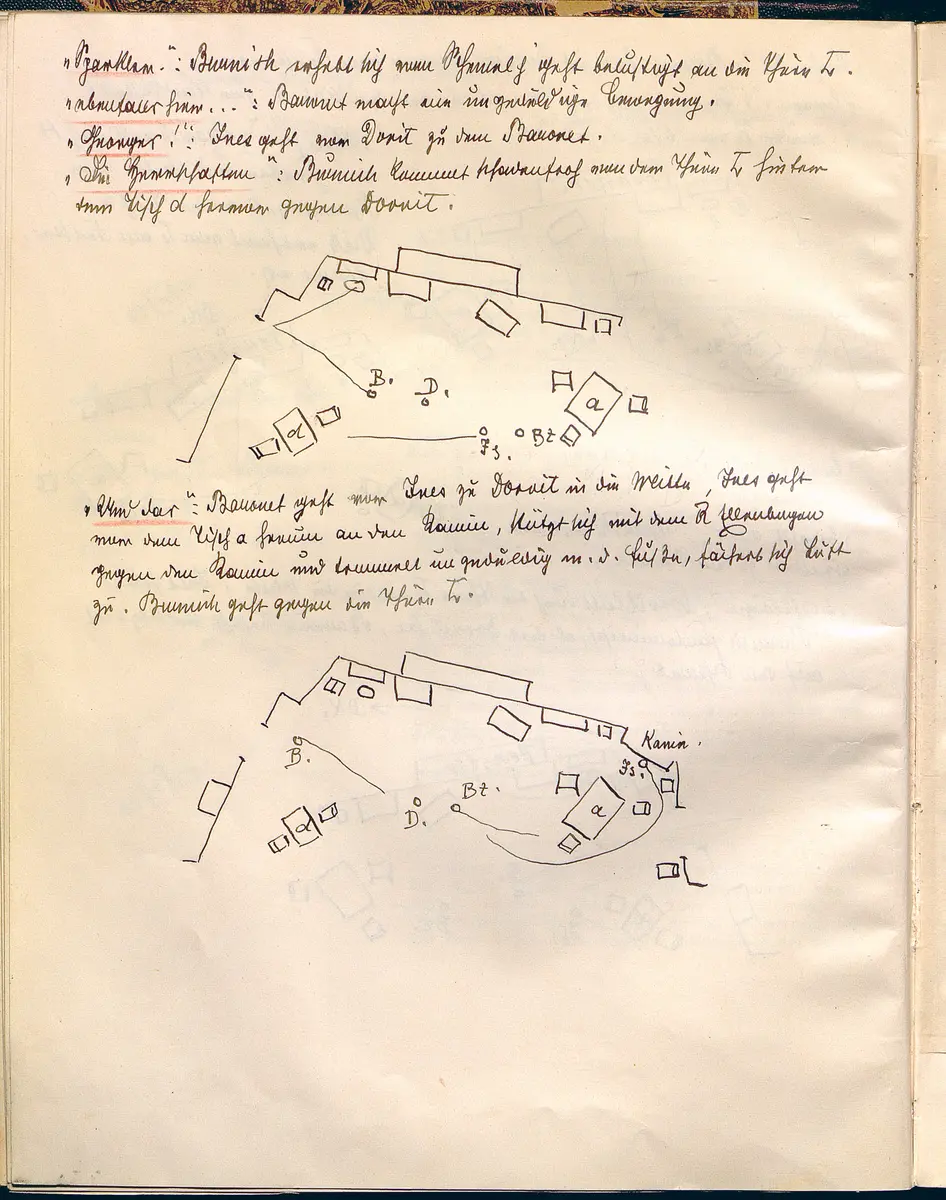 „Sparkler.“: Bunnish erhebt sich vom Schemel f geht belustigt an die Thüre L.
„ebenda hier...“: Baronet macht eine ungeduldige Bewegung.
„Georges!“: Ines geht vor Dorrit zu dem Baronet.
„Die Herrschaften“: Bunnish kommt schadenfroh von der Thüre L hinter
dem Tisch d hervor gegen Dorrit.
B. D.
a
d
Is. Bt
„Und das“: Baronet geht vor Ines zu Dorrit in die Mitte, Ines geht
vor dem Tisch a herum an den Kamin, stützt sich mit dem R Ellenbogen
gegen den Kamin und trommelt ungeduldig m. d. Fuße, fächert sich Luft
zu. Bunnish geht gegen die Thüre L.
Kamin.
B. Is.
Bt.
D. a
d